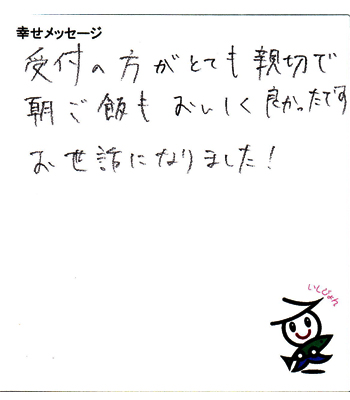 幸せメッセージ
受付の方がとても親切で
朝ご飯もおいしく良かったです
お世話になりました!